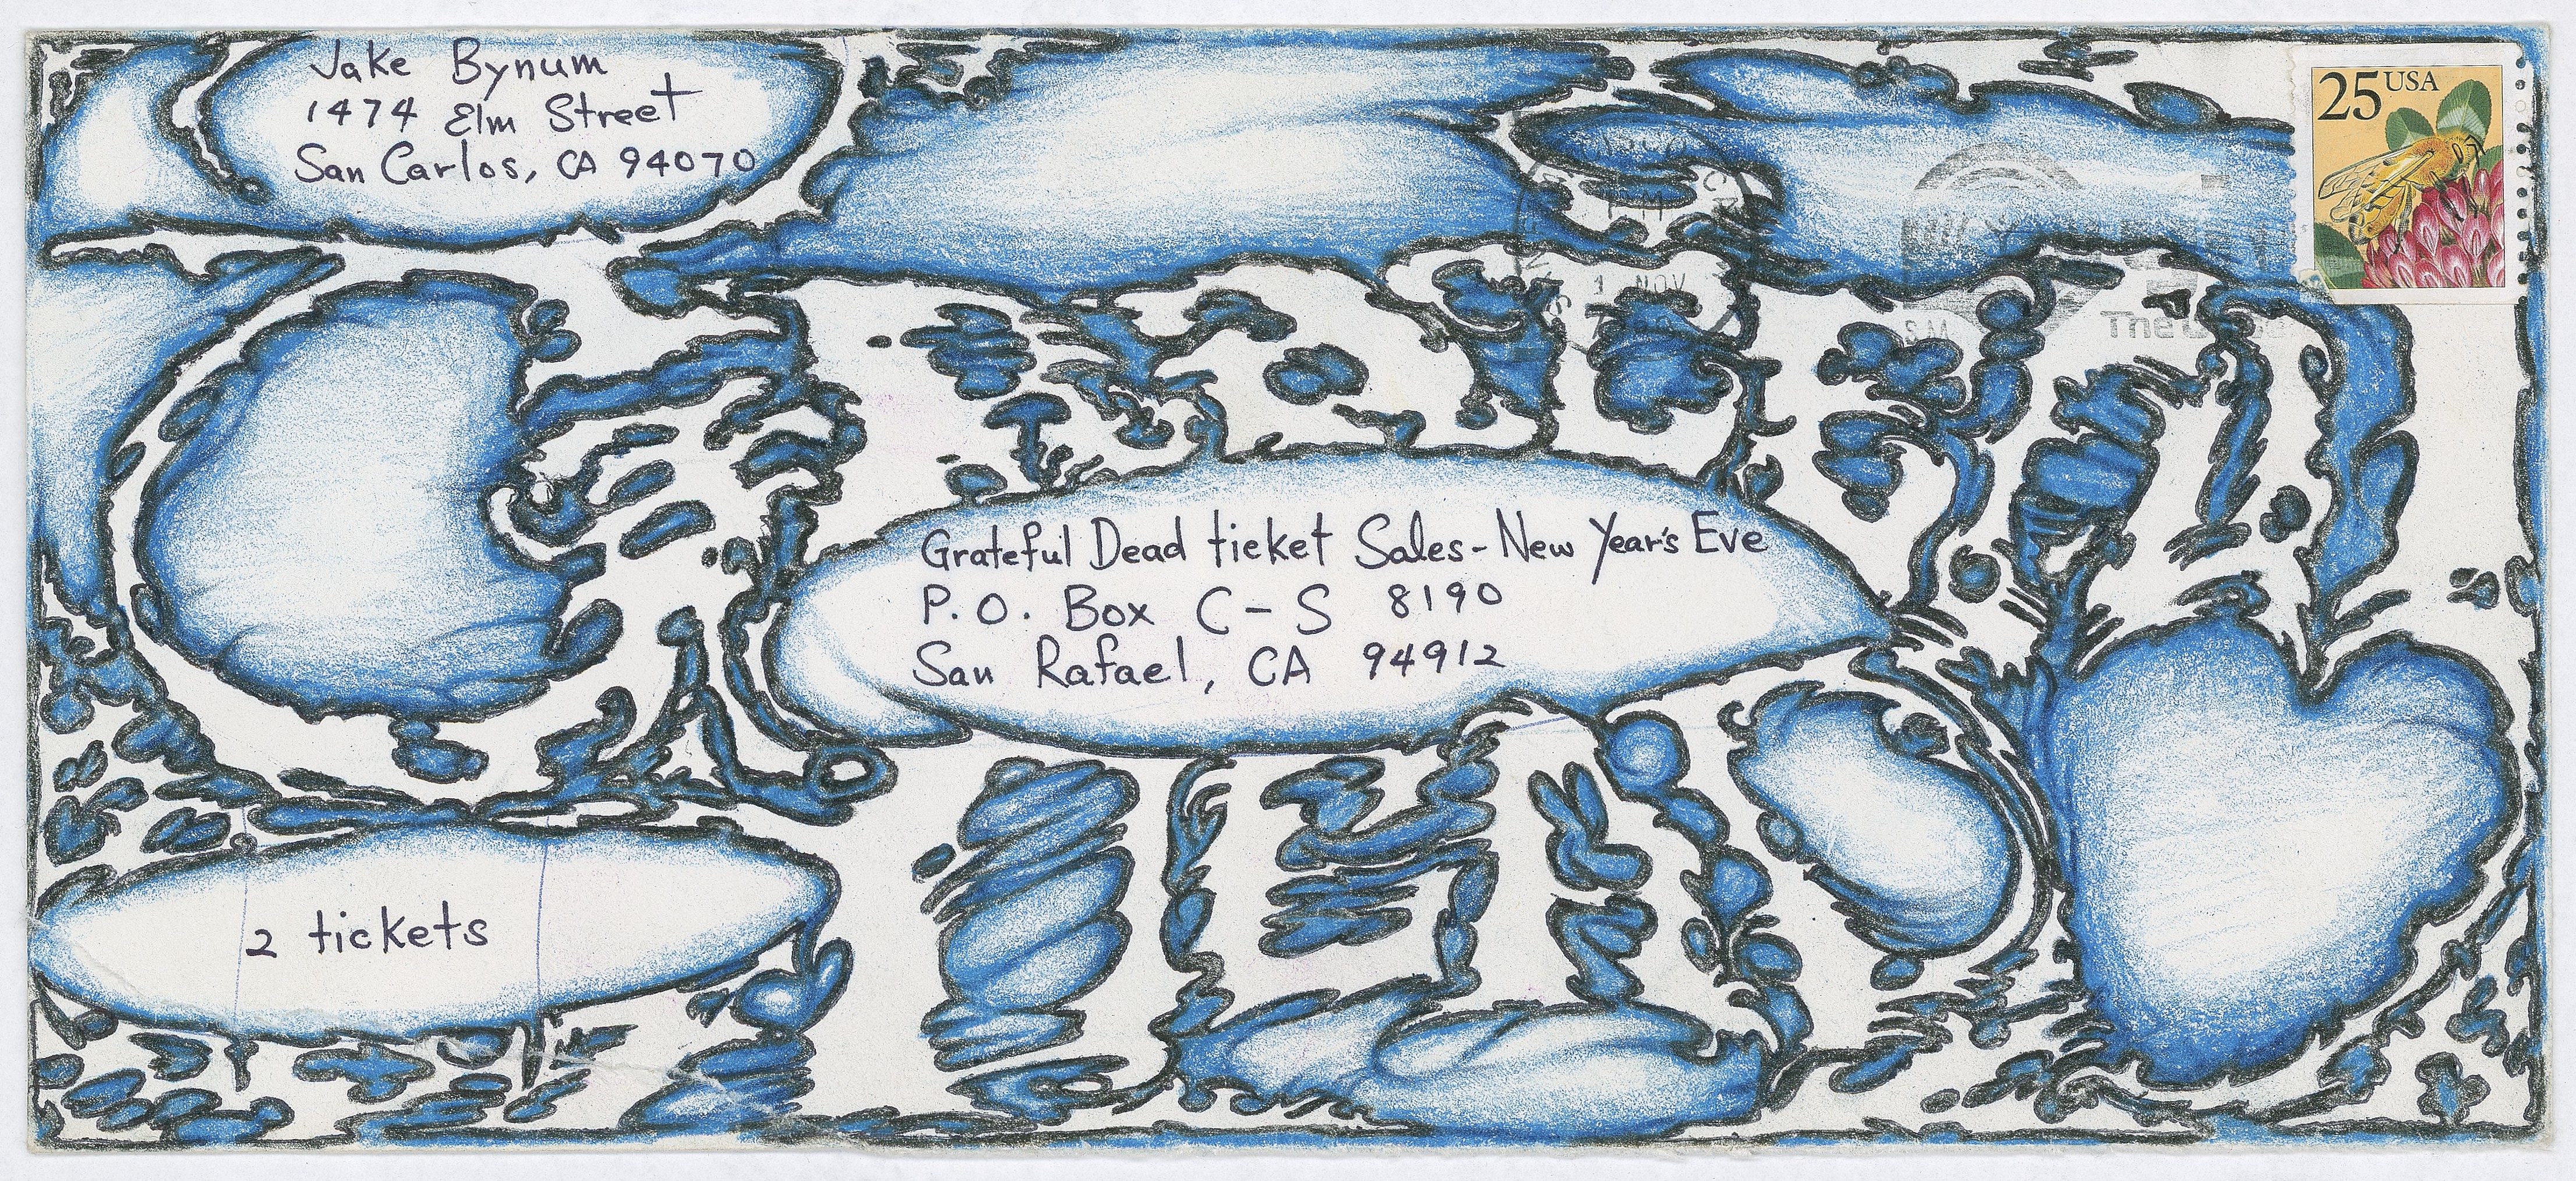 Jake Bynum
1474 Elm Street
San Carlos, CA 94070
25 USA
PM
1 NOV
The
Grateful Dead ticket Sales - New Year's Eve
P.O. Box C-S 8190
San Rafael, CA 94912
2 tickets